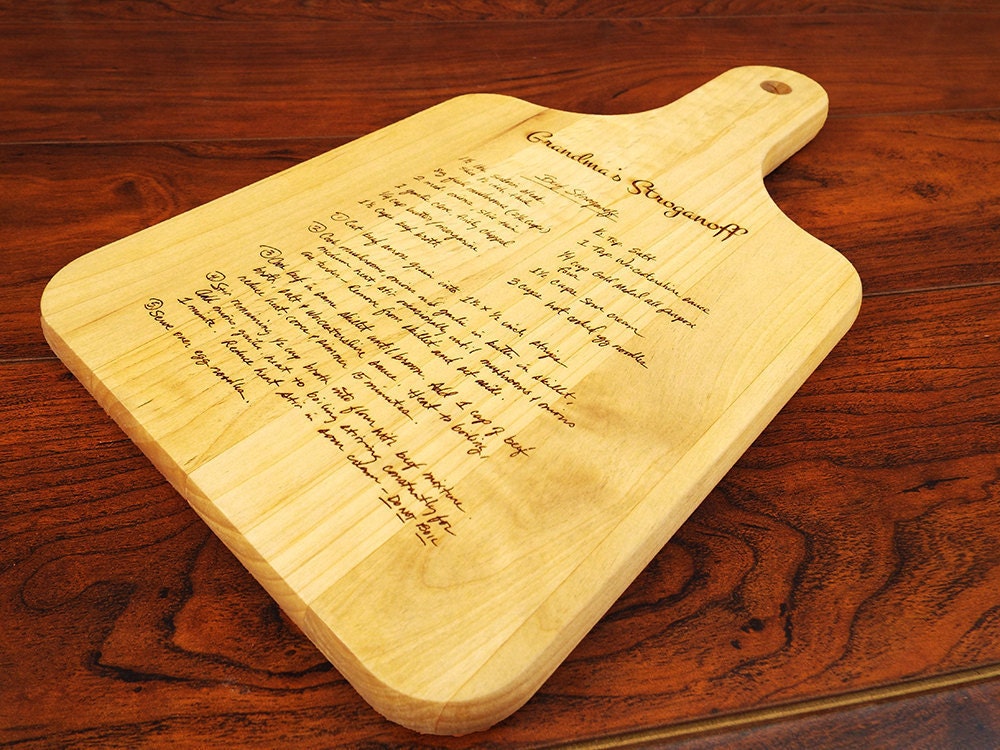 Grandma's Stroganoff
Beef Stroganoff
1½ lbs
8 oz
2 med. onions
1 garlic clove, finely chopped
¼ cup butter/margarine
1½ cups beef broth
½ Tsp Salt
1 Tsp Worcestershire sauce
¼ cup Gold Medal all purpose
flour
1½ cups sour cream
3 cups hot cooked egg noodles
① Cut beef across grain into 1½ x ½ inch strips
② Cook mushrooms, onions and garlic in butter in skillet
medium heat stir occasionally until mushrooms & onions
are tender - Remove from skillet and set aside.
③ Cook beef in same skillet until brown. Add 1 cup of beef
broth, salt & Worcestershire sauce. Heat to boiling,
reduce heat, cover & simmer 15 minutes
④ Stir remaining ½ cup broth into flour with beef mixture.
Add onion, heat to boiling stirring constantly for
1 minute. Reduce heat stir in sour cream - DO NOT BOIL
⑤ Serve over egg noodles.